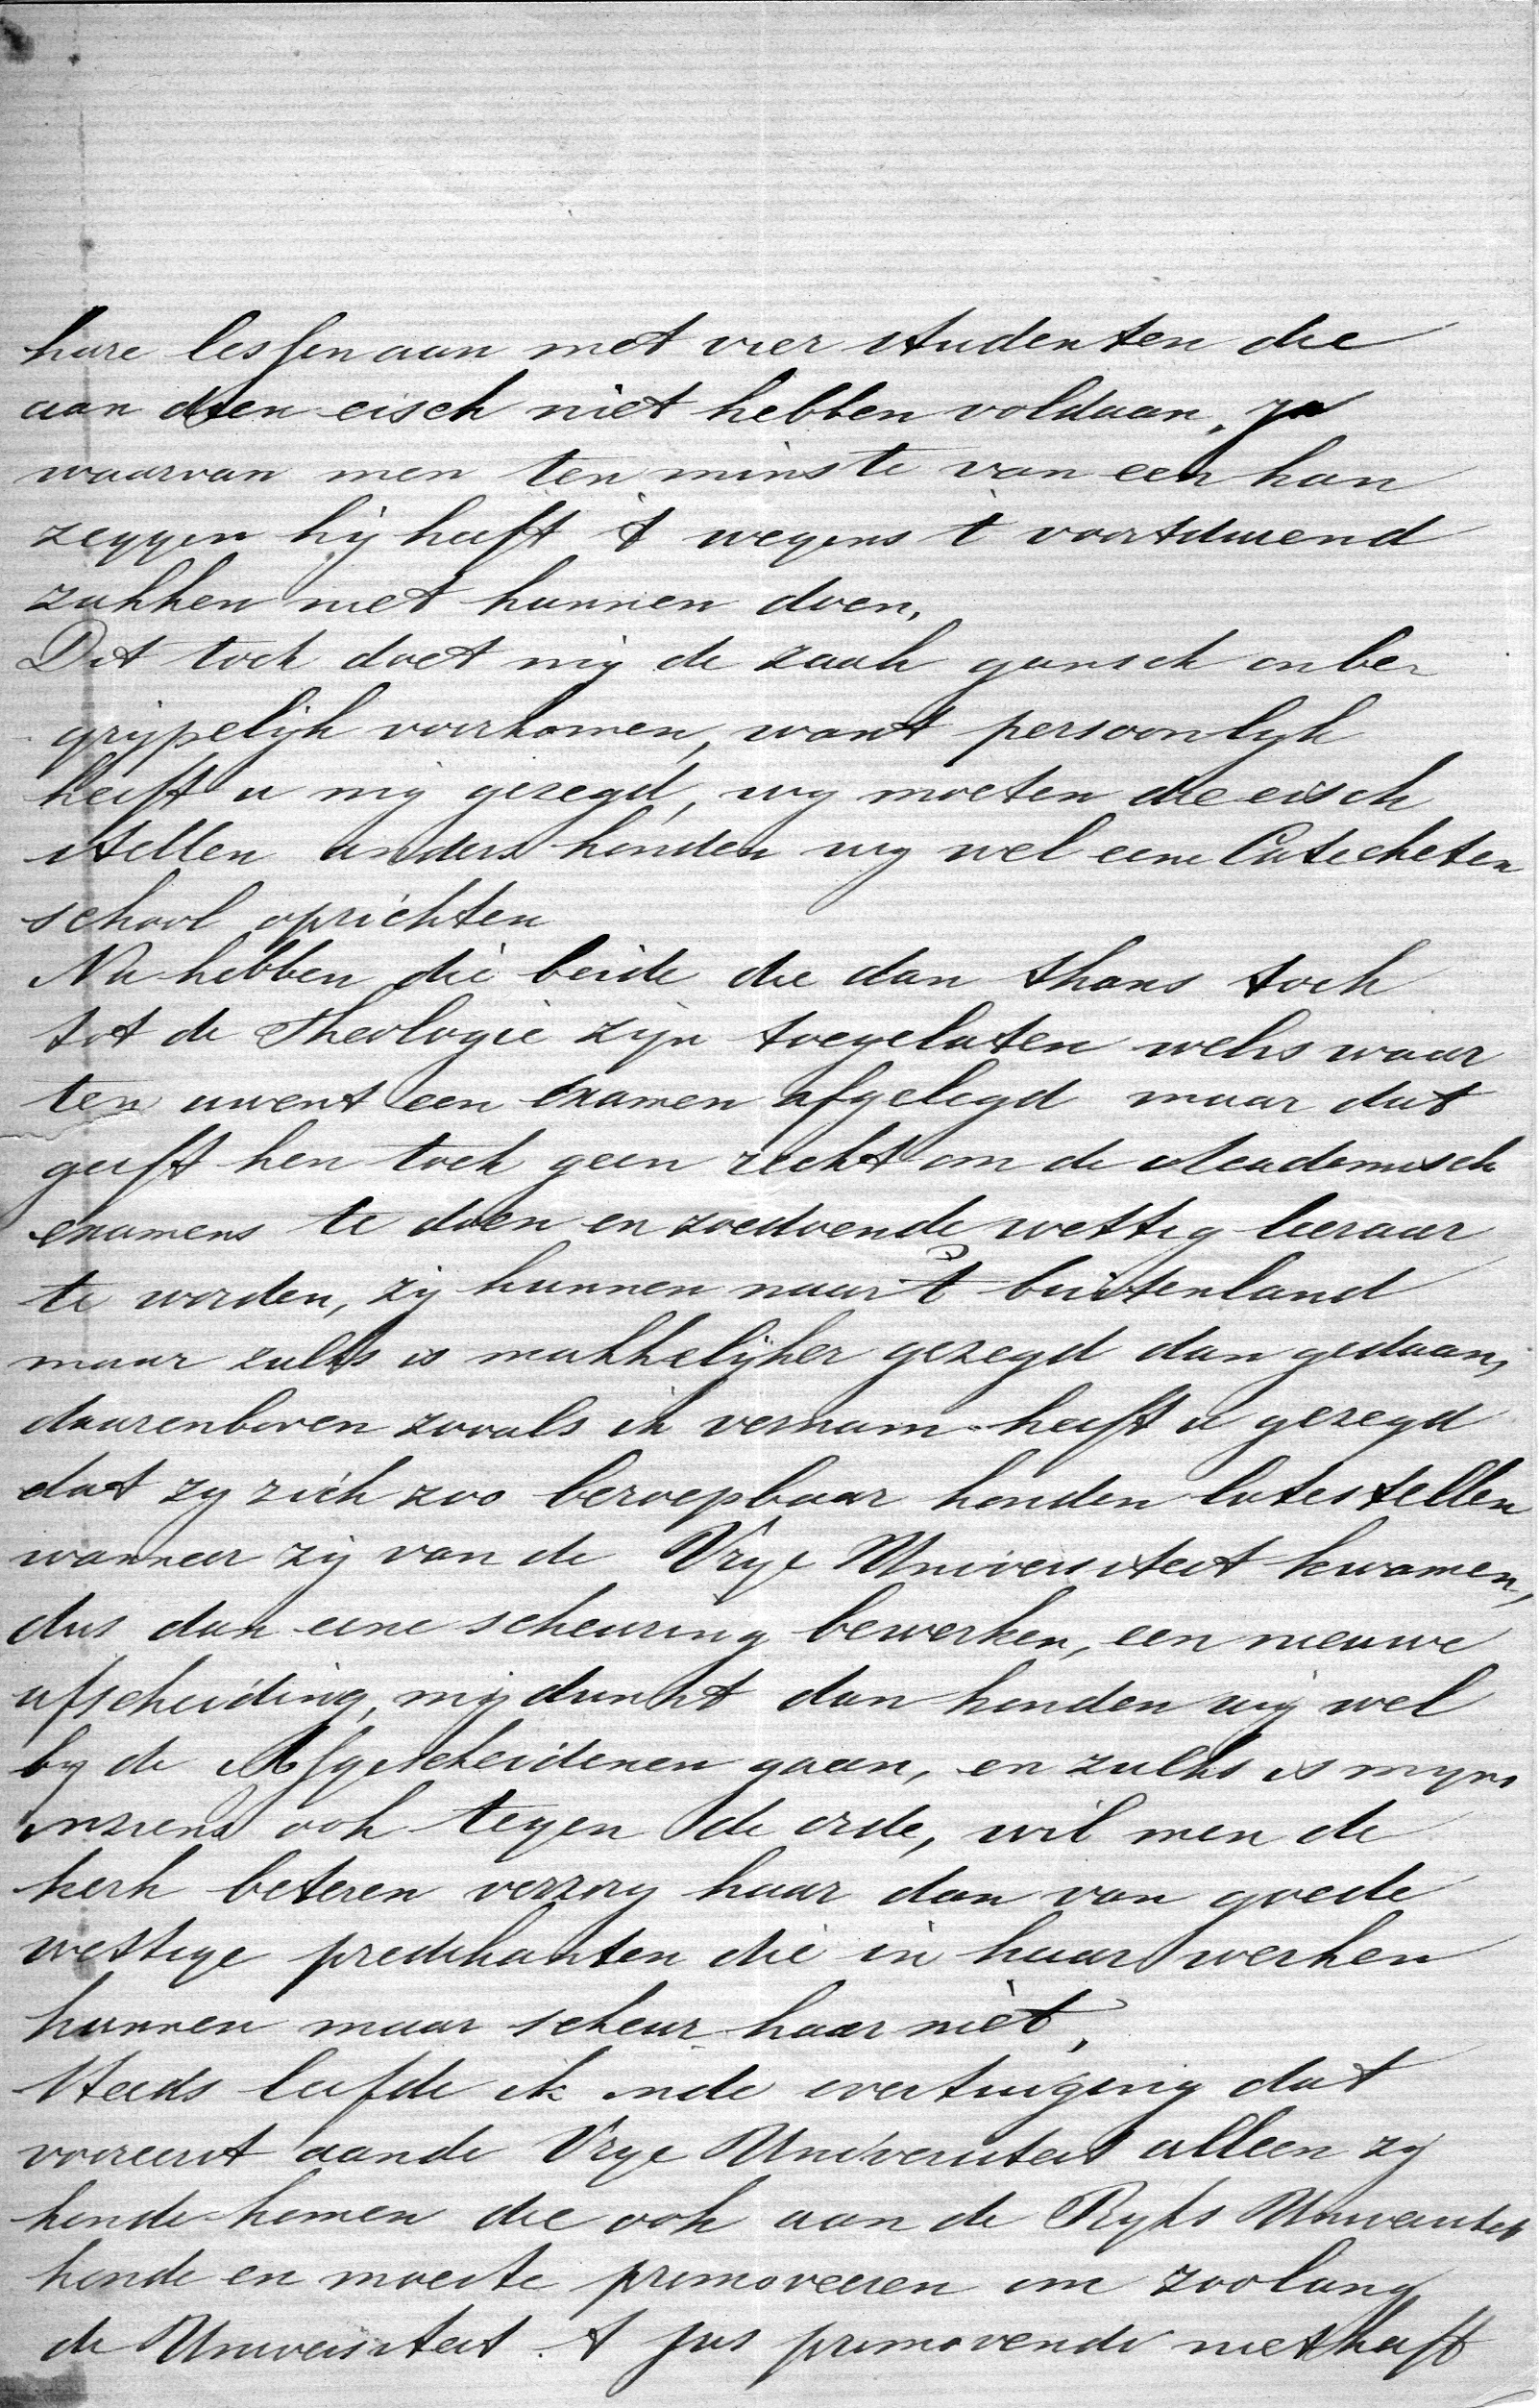 hare lessen aan met vier studenten die
aan dien eisch niet hebben voldaan, ja
waarvan men ten minste van een kan
zeggen hij heeft 't wegens 't voortdurend
zakken niet kunnen doen.
Dit toch doet mij de zaak gansch onbe-
grijpelijk voorkomen, want persoonlijk
heeft u mij gezegd, wij moeten die eisch
stellen anders konden wij wel eene Catecheten
school oprichten
Nu hebben die beide die dan thans toch
tot de Theologie zijn toegelaten welis waar
ten uwent een examen afgelegd maar dat
geeft hen toch geen recht om de Academisch
examens te doen en zoodoende wettig leeraar
te worden, zij kunnen naar 't buitenland
maar zulks is makkelijker gezegd dan gedaan,
daarenboven zooals ik vernam heeft u gezegd
dat zij zich zoo beroepbaar konden laten stellen
wanneer zij van de Vrije Universiteit kwamen,
dus dan eene scheuring bewerken, een nieuwe
afscheiding, mij dunkt dan konden wij wel
bij de Afgescheidenen gaan, en zulks is mijns
inziens ook tegen de orde, wil men de
kerk beteren verzorg haar dan van goede
wettige predikanten die in haar werken
kunnen maar scheur haar niet.
Steeds leefde ik inde overtuiging dat
vooreerst aande Vrije Universiteit alleen zij
konde komen die ook aan de Rijks Universiteit
konde en moeste promoveeren om zoolang
de Universiteit 't jus promovendi niet heeft